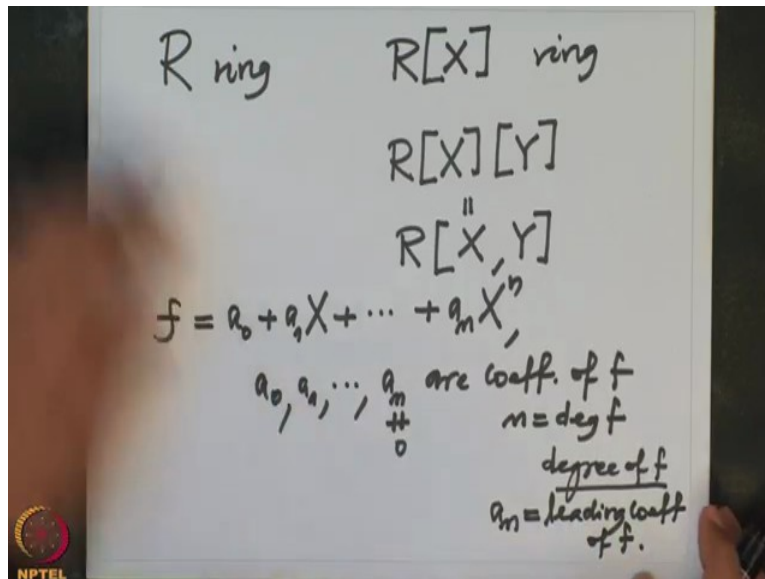 R ring R[X] ring
R[X][Y]
=
R[X,Y]
f = a₀ + a₁X + ⋯ + aₙXⁿ,
a₀, a₁, ⋯, aₙ are coeff. of f
≠
0
n = deg f
degree of f
aₙ = leading coeff
of f.
NPTEL